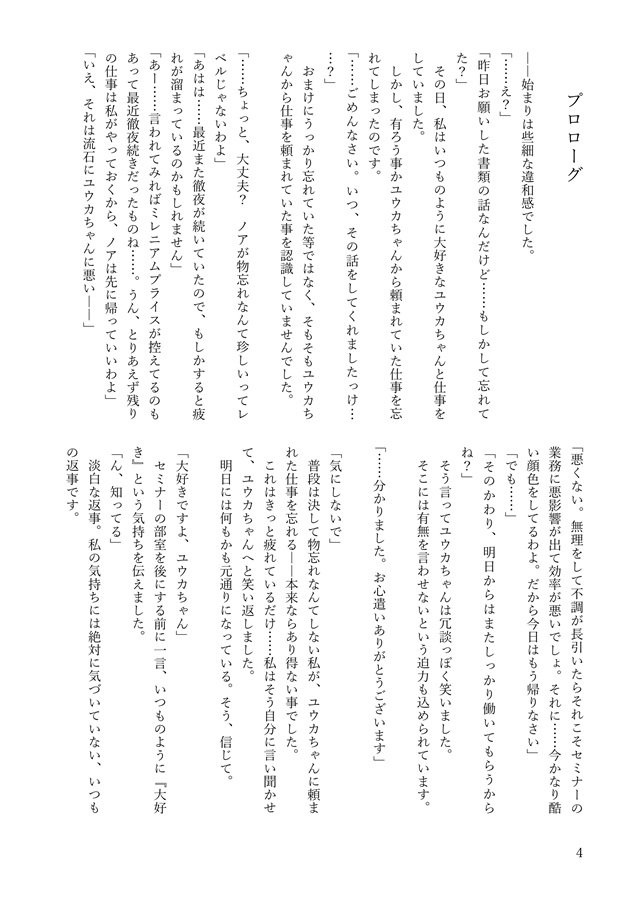 プロローグ
――始まりは些細な違和感でした。
「……え？」
「昨日お願いした書類の話なんだけど……もしかして忘れて
た？」
その日、私はいつものように大好きなユウカちゃんと仕事を
していました。
しかし、有ろう事かユウカちゃんから頼まれていた仕事を忘
れてしまったのです。
「……ごめんなさい。いつ、その話をしてくれましたっけ…
…？」
おまけにうっかり忘れていた等ではなく、そもそもユウカち
ゃんから仕事を頼まれていた事を認識していませんでした。
「……ちょっと、大丈夫？　ノアが物忘れなんて珍しいってレ
ベルじゃないわよ」
「あはは……最近また徹夜が続いていたので、もしかすると疲
れが溜まっているのかもしれません」
「あー……言われてみればミレニアムプライスが控えてるのも
あって最近徹夜続きだったものね……。うん、とりあえず残り
の仕事は私がやっておくから、ノアは先に帰っていいわよ」
「いえ、それは流石にユウカちゃんに悪い――」
「悪くない。無理をして不調が長引いたらそれこそセミナーの
業務に悪影響が出て効率が悪いでしょ。それに……今かなり酷
い顔色をしてるわよ。だから今日はもう帰りなさい」
「でも……」
「そのかわり、明日からはまたしっかり働いてもらうから
ね？」
そう言ってユウカちゃんは冗談っぽく笑いました。
そこには有無を言わせないという迫力も込められています。
「……分かりました。お心遣いありがとうございます」
「気にしないで」
普段は決して物忘れなんてしない私が、ユウカちゃんに頼ま
れた仕事を忘れる――本来ならあり得ない事でした。
これはきっと疲れているだけ……私はそう自分に言い聞かせ
て、ユウカちゃんへと笑い返しました。
明日には何もかも元通りになっている。そう、信じて。
「大好きですよ、ユウカちゃん」
セミナーの部室を後にする前に一言、いつものように『大好
き』という気持ちを伝えました。
「ん、知ってる」
淡白な返事。私の気持ちには絶対に気づいていない、いつも
の返事です。
4